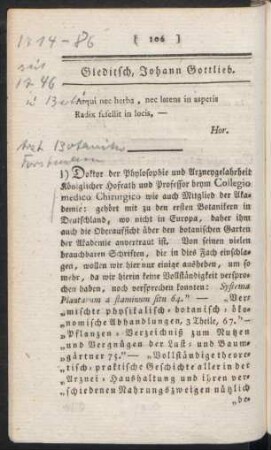 1714-86
( 106 )
Gleditsch, Johann Gottlieb.
seit
1746
Atqui nec herba, nec latens in asperis
Radix fefellit in locis, —
Hor.
Arzt Botaniker
Forstmann
1) Doktor der Phylosophie und Arzneygelahrheit
Königlicher Hofrath und Professor beym Collegio
medico Chirurgico wie auch Mitglied der Aka-
demie: gehört mit zu den ersten Botanikern in
Deutschland, wo nicht in Europa, daher ihm
auch die Oberaufsicht über den botanischen Garten
der Akademie anvertraut ist. Von seinen vielen
brauchbaren Schriften, die in dies Fach einschla-
gen, wollen wir hier nur einige ausheben, um so
mehr, da wir hier keine Vollständigkeit verspro-
chen haben, noch versprechen konnten: Systema
Plantarum a staminum situ 64." — „Ver-
„mischte physikalisch-botanisch-öko-
„nomische Abhandlungen, 3 Theile, 67."—
„Pflanzen-Verzeichniß zum Nutzen
„und Vergnügen der Lust- und Baum-
„gärtner 73."— „Vollständige theore-
„tisch-praktische Geschichte aller in der
„Arznei- Haushaltung und ihren ver-
„schiedenen Nahrungszweigen nützlich
be-